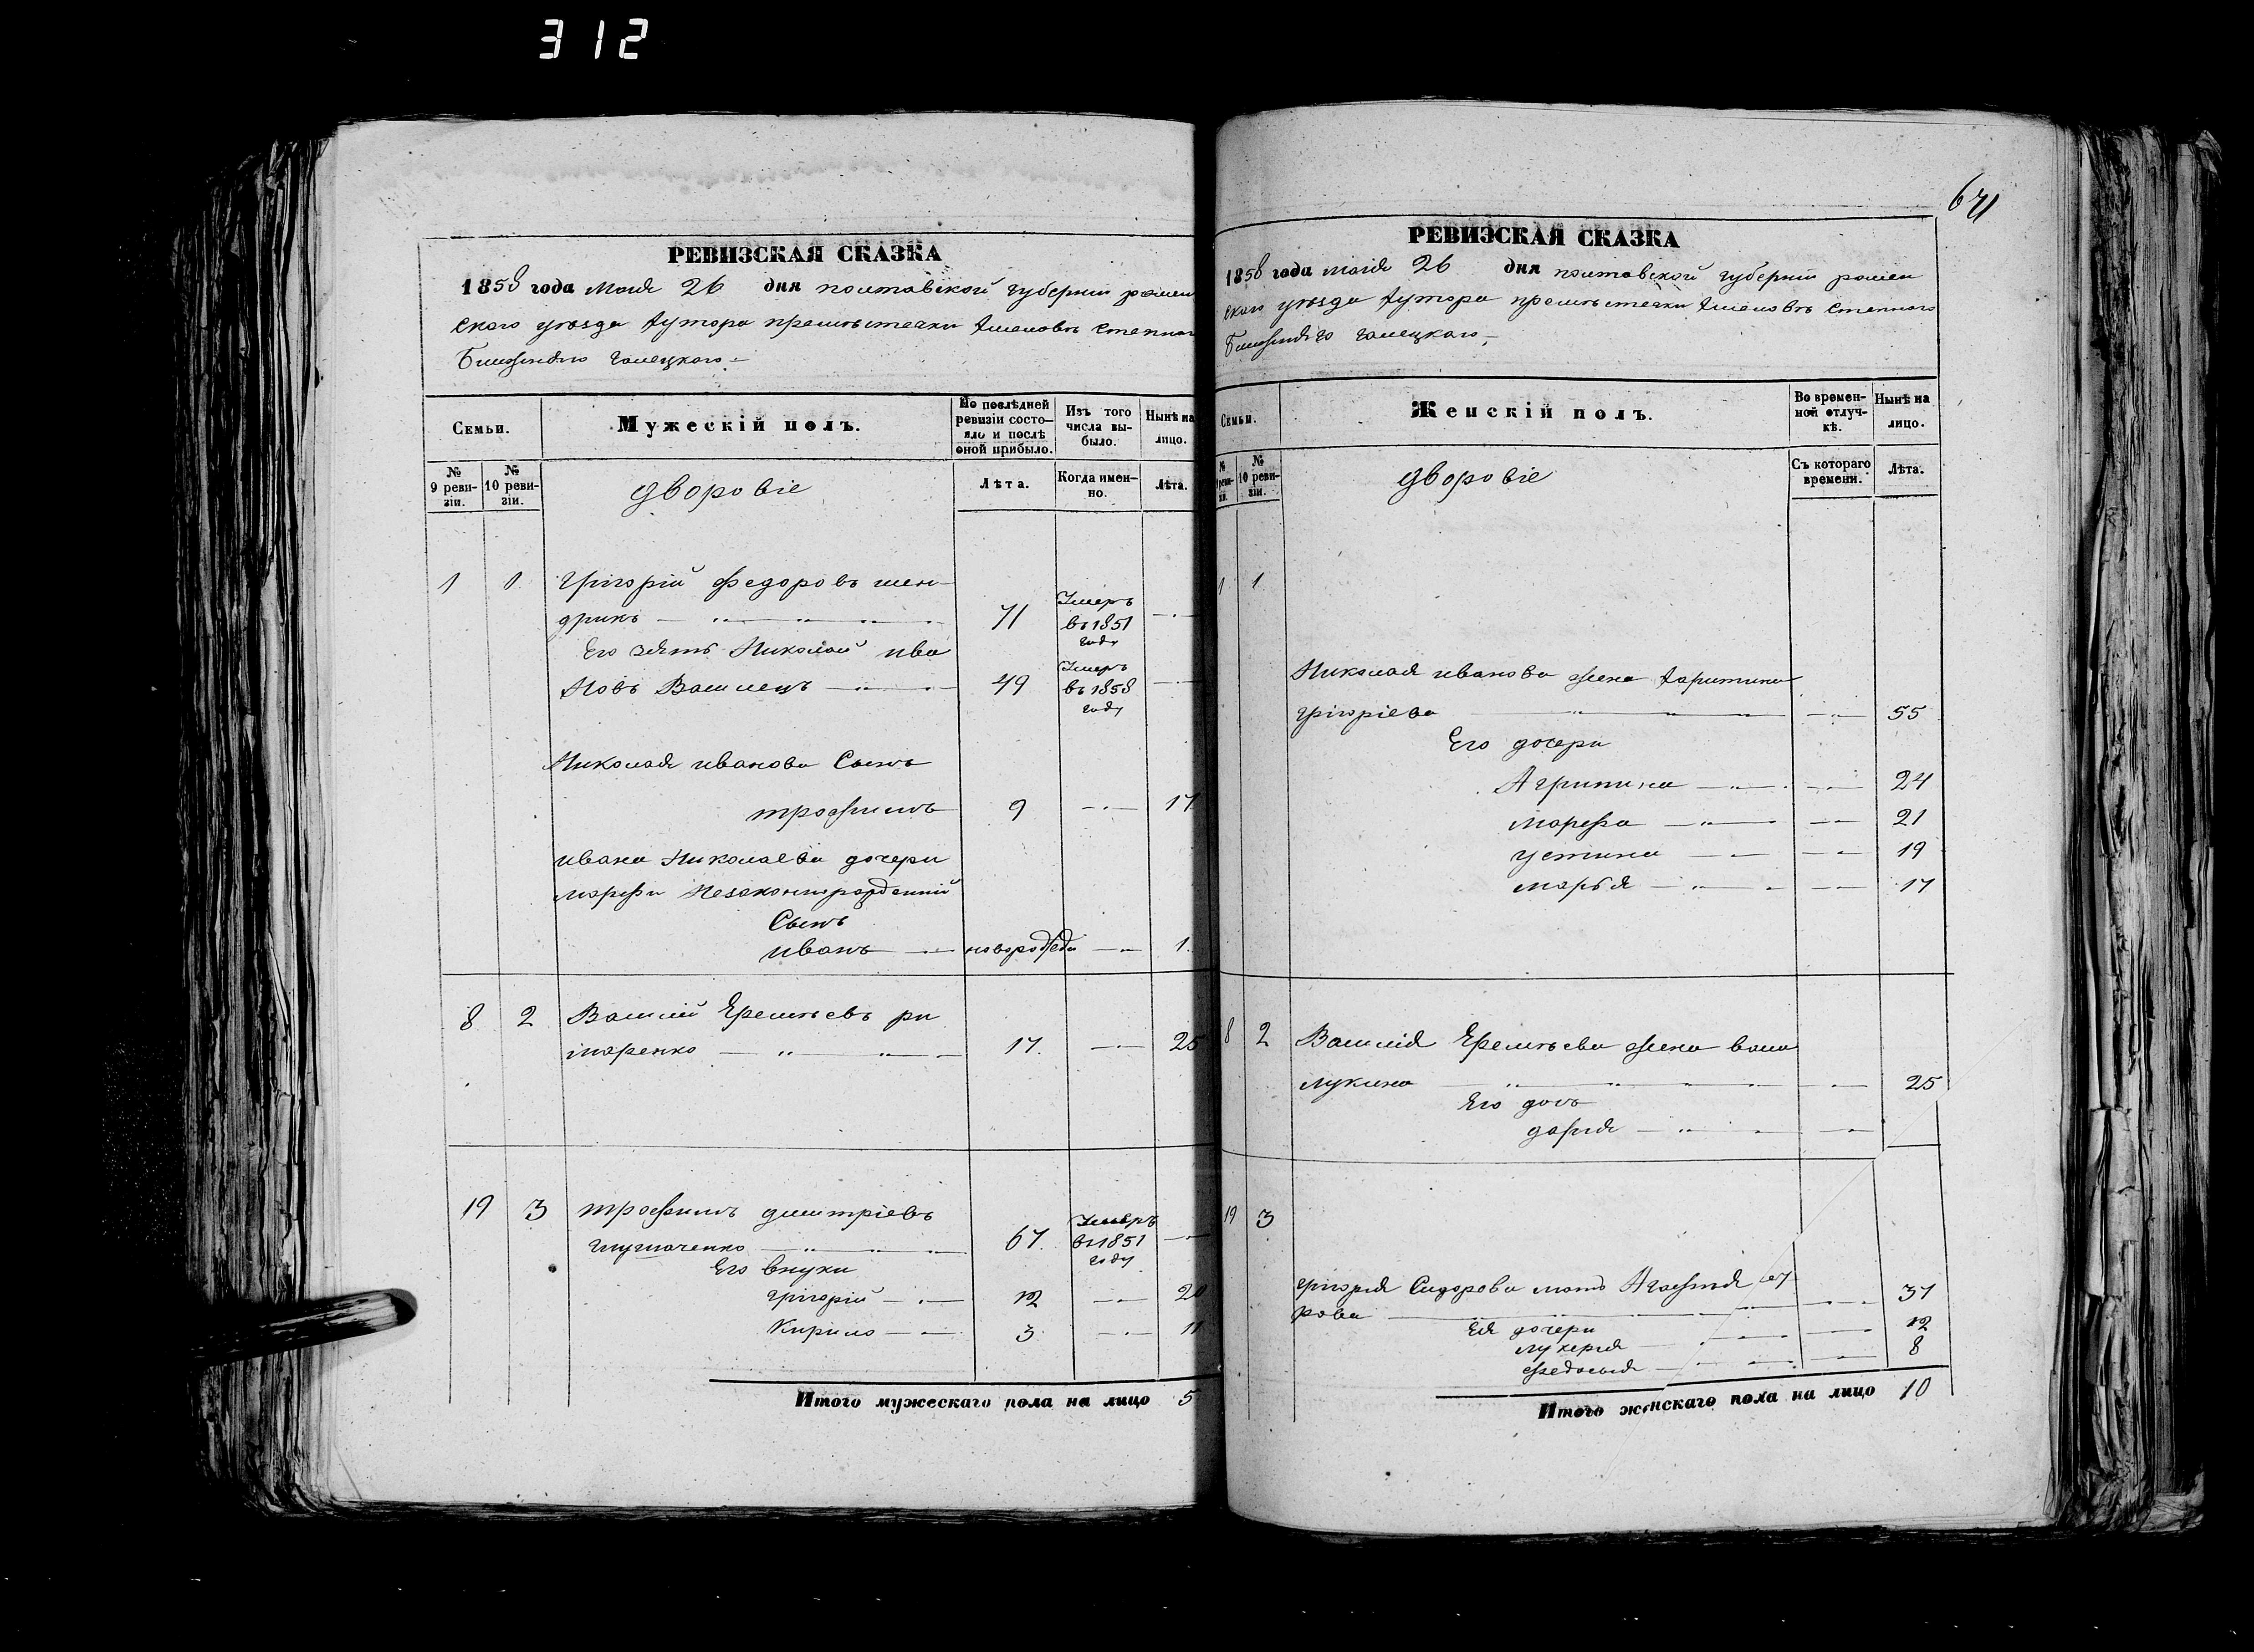 312
РЕВИЗСКАЯ СКАЗКА
1858 года Маія 26 дня полтавской губерніи ромен
ского уезда хутора
Галецкого
Семьи.
Мужескій полъ.
По послѣдней ревизіи состояло и послѣ оной прибыло.
Изъ того числа выбыло.
Нынѣ на лицо.
№ 9 ревизіи.
№ 10 ревизіи.
дворовіе
Лѣта.
Когда именно.
Лѣта.
1 1 Григорій Федоровъ шен
дрикъ 71 Умеръ въ 1851 году
Его зять Николай ива
новъ Василецъ 49 Умеръ въ 1858 году
Николая иванова Сынъ
трофимъ 9 17
ивана Николаева дочери
марфи Незаконнорожденній
Сынъ
иванъ 1
8 2 Василій Еремѣевъ ри
маренко 17. 25
19 3 трофимъ дмитріевъ
67. Умеръ въ 1851 году
Его внуки
Григорій 12 20
Кирило 3 11
Итого мужескаго пола на лицо 5
671
РЕВИЗСКАЯ СКАЗКА
1858 года маія 26 дня полтавской губерніи ромен
ского уезда хутора
Галецкого
Семьи.
Женскій полъ.
Во временной отлучкѣ.
Нынѣ на лицо.
№ 10 ревизіи.
дворовіе
Съ котораго времени.
Лѣта.
1 1
Николая иванова жена харитина
григоріева 55
Его дочери
Агрипина 24
марфа 21
устина 19
марья 17
8 2 Василія Еремѣева жена
лукина 25
Его дочь
дарія
19 3
григорія Сидорова мать Агафія
рова 37
Ея дочери
лукерія 12
федосія 8
Итого женскаго пола на лицо 10